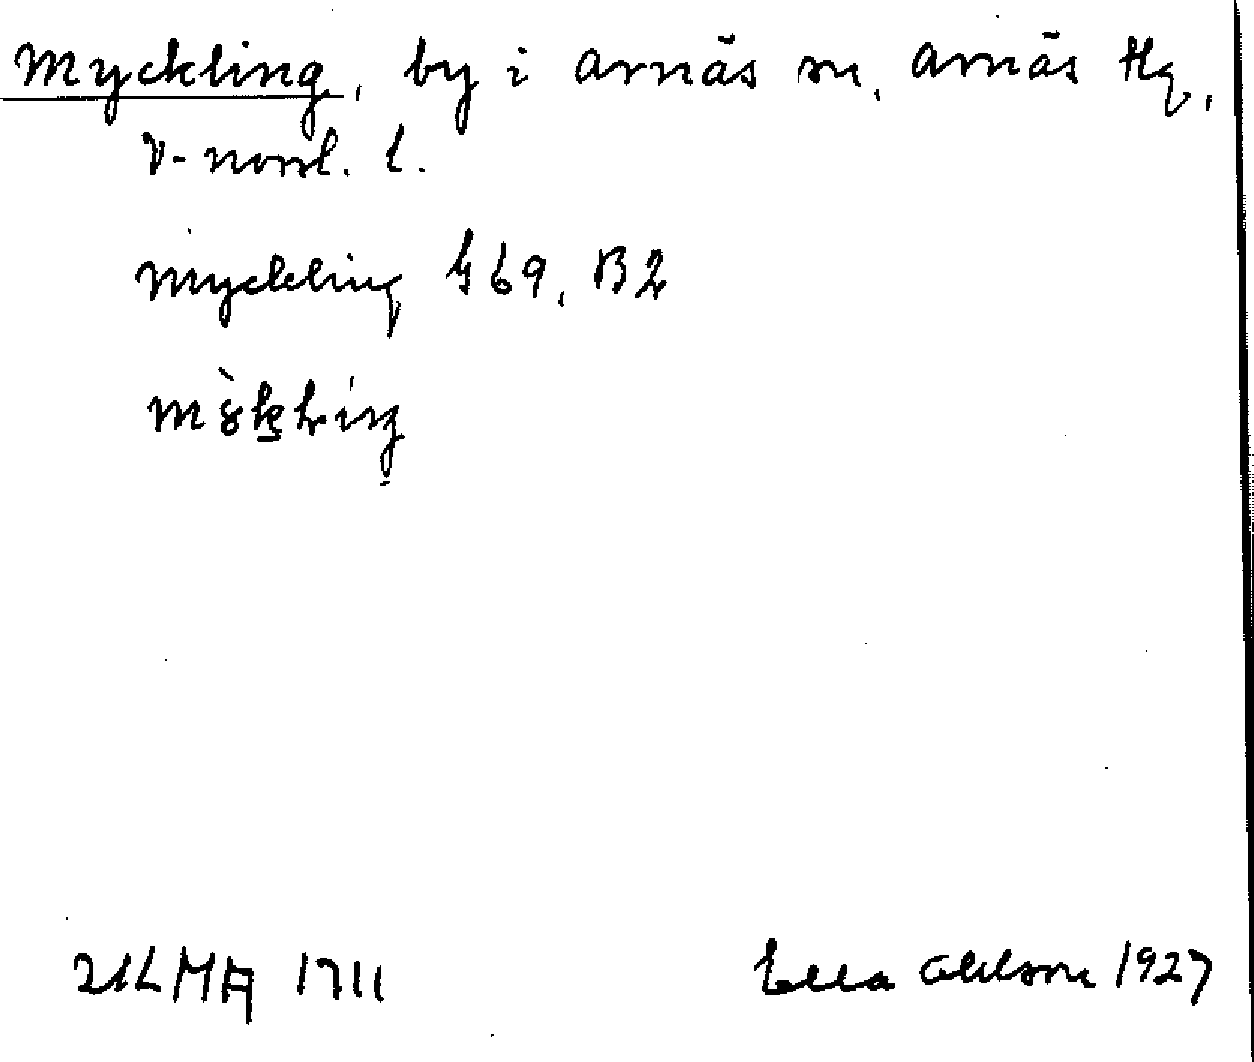 Myckling, by i Arnäs sn, Arnäs tlg,
V-norrl. l.
Myckling G69, B2
ULMA 1711 Ella Ohlson 1927